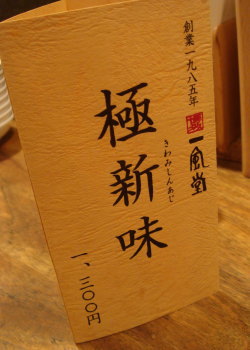 創業一九八五年
一風堂
極新味
きわみしんあじ
一、三〇〇円